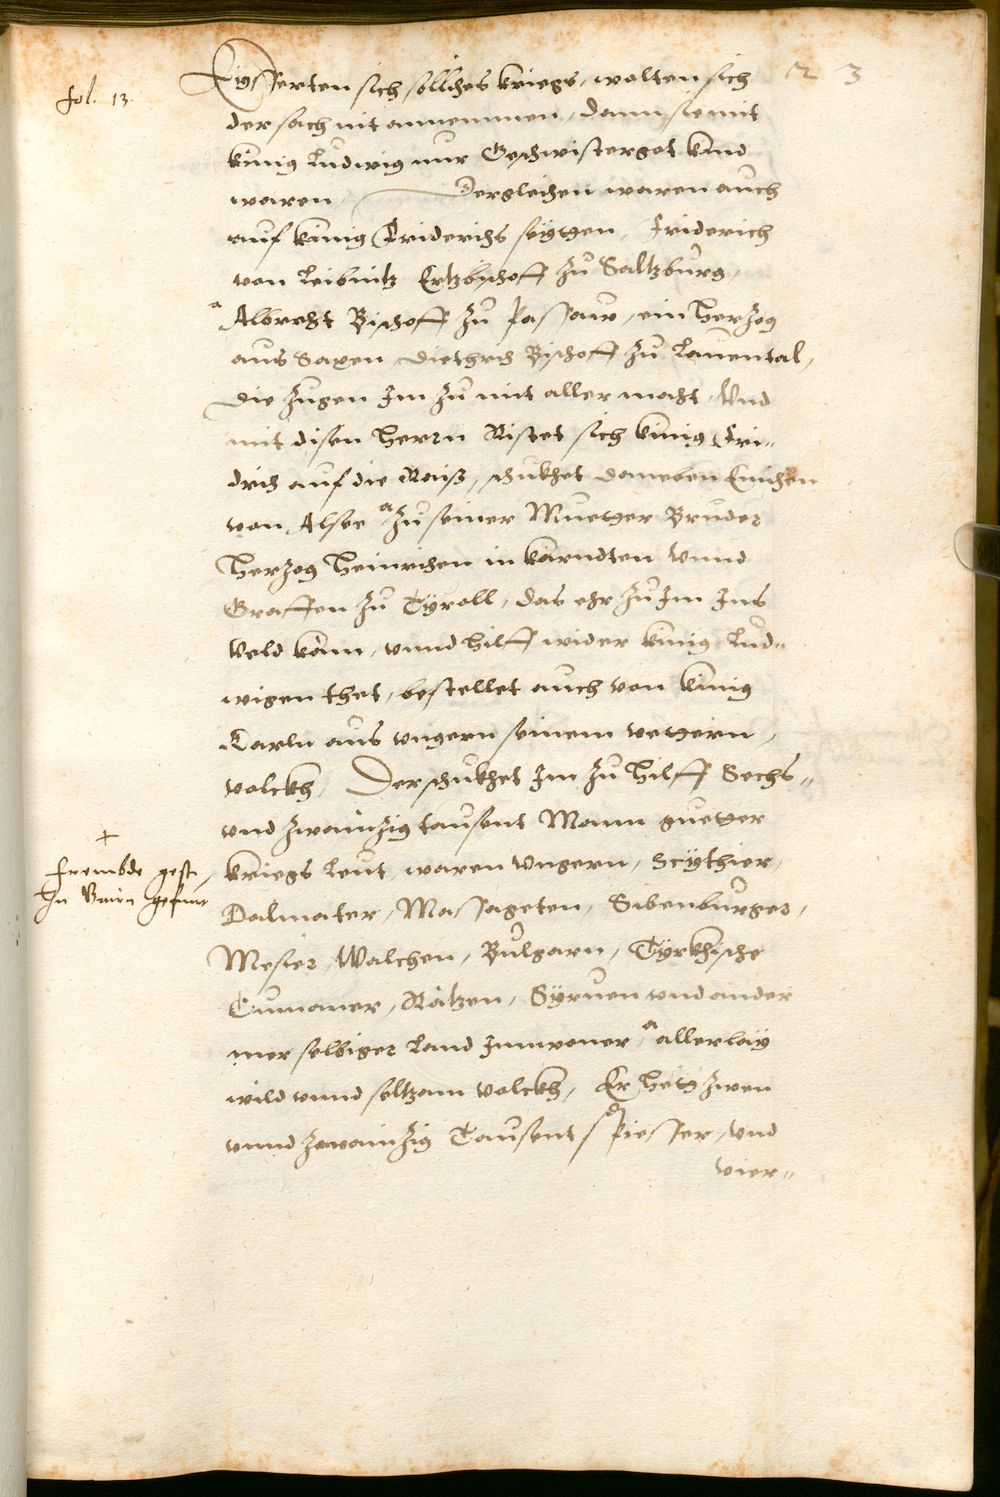 fol. 13.
23
Eisserten sich sölliches kriegs, wolten sich
der sach nit annemmen, dann sie mit
künig Ludwig nur Geschwistergot kind
waren, Dergleichen waren auch
auf künig Friderichs seytten, Friderich
von Leibnitz Ertzbischoff Zu Saltzburg,
Albrecht Bischoff Zu Passaw, ein Herzog
aus Saxen Diethrich Bischoff Zu Lauental,
die Zugen Im Zu mit aller macht, Vnd
mit disen Herrn Ristet sich künig Fri-
drich auf die Raiß, schukhet daneben
von Alsee Zu seiner Muetter Bruder
Herzog Heinrichen in kärndten vnnd
Graffen Zu Tyroll, das ehr Zu Im Ins
Veld käm, vnnd hilff wider künig Lud-
wigen thet, bestellet auch von künig
Carln aus vngern seinem vettern,
volckh, Der schukhet Im Zu hilff Sechs-
vnd zwainzig tausent Mann guetter
kriegs leut, waren Vngern, Scythier,
Frembde gest
In Bairn gefürt
Dalmater, Massageten, Sibenburger,
Mesier, Walchen, Bulgarn, Tyrkhische
Cumaner, Rätzen, Syruen vnd ander
mer selbiger Land Innwoner, allerlay
wild vnnd seltzam volckh, Er hett zwen
vnnd zwainzig Tausent spiesser, vnd
vier-